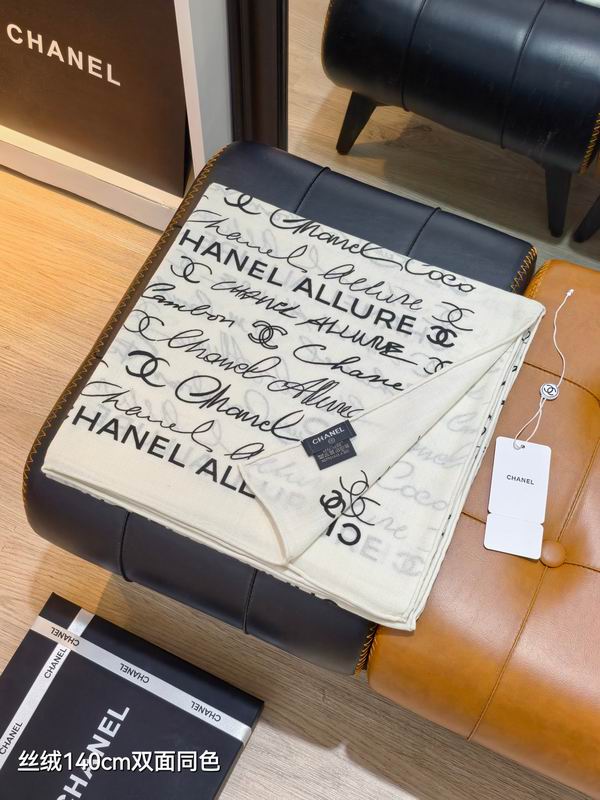 CHANEL
Chanel Coco
Chanel Allure
HANEL ALLURE
CHANEL ALLURE
Cambon
Chane
Chanel Allure
Chanel
Chanel
HANEL ALL
CHANEL
CHANEL
CHANEL
CHANEL
CHANEL
CHANEL
CHANEL
CHANEL
丝绒140cm双面同色